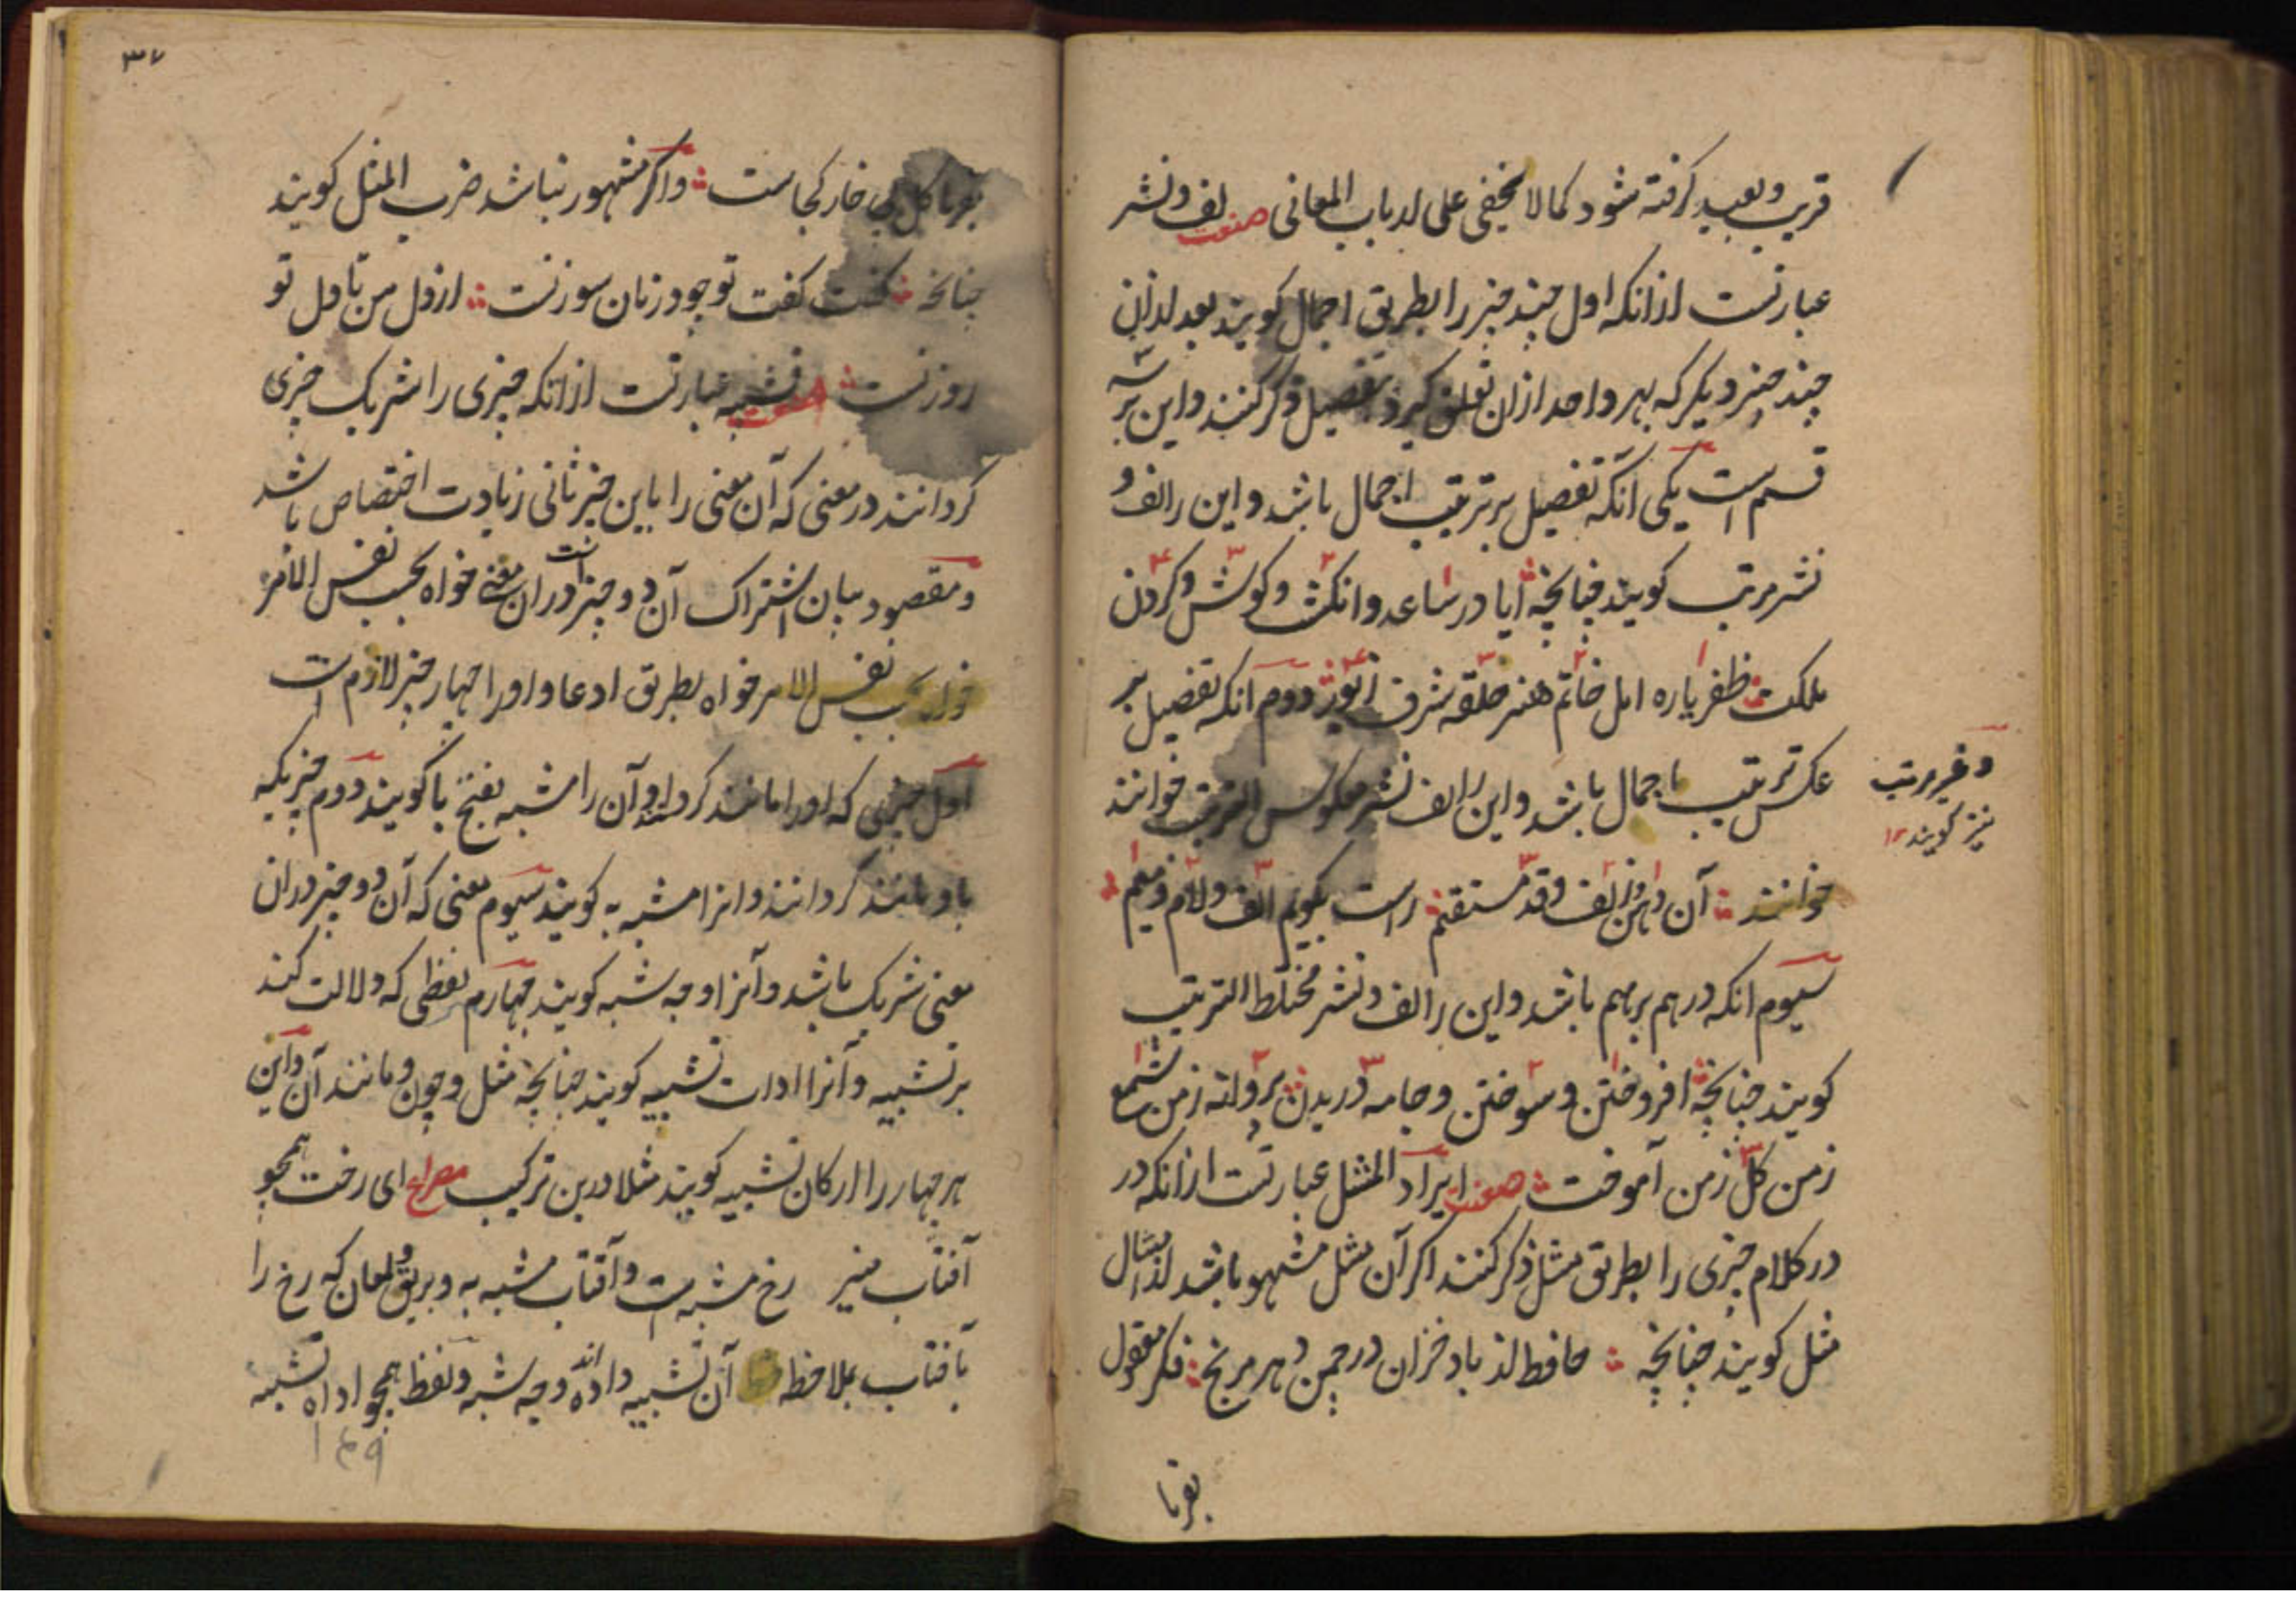 قریب و بعید گرفته شود کمالا یخفی علی ارباب المعانی صنعت لف و نشر
عبارتست ازانکه اول چند چیز را بطریق اجمال گویند بعد ازان
چند چیز دیگر که بهر واحد ازان تعلق گیرد بتفصیل ذکر کنند و این بر سه
قسم است یکی آنکه تفصیل بر ترتیب اجمال باشد و این را لف و
نشر مرتب گویند چنانچه ایا در ساعد و انگشت و گوش و گردن
ملکت ظفر یاره امل خاتم هنر حلقه شرف زیور دوم آنکه تفصیل بر
عکس ترتیب اجمال باشد و این را لف نشر معکوس الترتیب خوانند
و غیر مرتب
نیز گویند ۱۲
خوانند آن دهن و زلف و قد مستقیم راست بگویم الف و لام و میم
سیوم انکه درهم برهم باشد و این را لف و نشر مختلط الترتیب
گویند چنانچه افروختن و سوختن و جامه دریدن پروانه ز من شمع
ز من گل ز من آموخت صنعت ایراد المثل عبارتست ازانکه در
در کلام چیزی را بطریق مثل ذکر کنند اگر آن مثل مشهور باشد ارسال
مثل گویند چنانچه حافظ از باد خزان در چمن دهر مرنج فکر معقول
بفرما
۳۷
بفرما گل بی خار کجاست و اگر مشهور نباشد ضرب المثل گویند
چنانچه گفت تو چو در زنان سوزنست از دل من تا دل تو
روزنست صنعت تشبیه عبارتست ازانکه چیزی را شریک چیزی
گردانند در معنی که آن معنی را باین چیز ثانی زیادت اختصاص باشد
و مقصود بیان اشتراک آن دو چیز است دران معنی خواه بحسب نفس الامر
نفس الامر خواه بطریق ادعا و او را چهار چیز لازم است
اول چیزی که او را مانند گردانند و آن را مشبه بفتح با گویند دوم چیزیکه
باو مانند گردانند و انرا مشبه به گویند سیوم معنی که آن دو چیز دران
معنی شریک باشد و آنرا وجه شبه گویند چهارم لفظی که دلالت کند
بر تشبیه و آنرا ادات تشبیه گویند چنانچه مثل و چون و مانند آن و این
هر چهار را ارکان تشبیه گویند مثلا درین ترکیب مصراع ای رخت همچو
آفتاب منیر رخ مشبه است و آفتاب مشبه به و بریق و لمعان که رخ را
بافتاب بملاحظه آن تشبیه داده اند وجه شبه و لفظ همچو اداه تشبیه